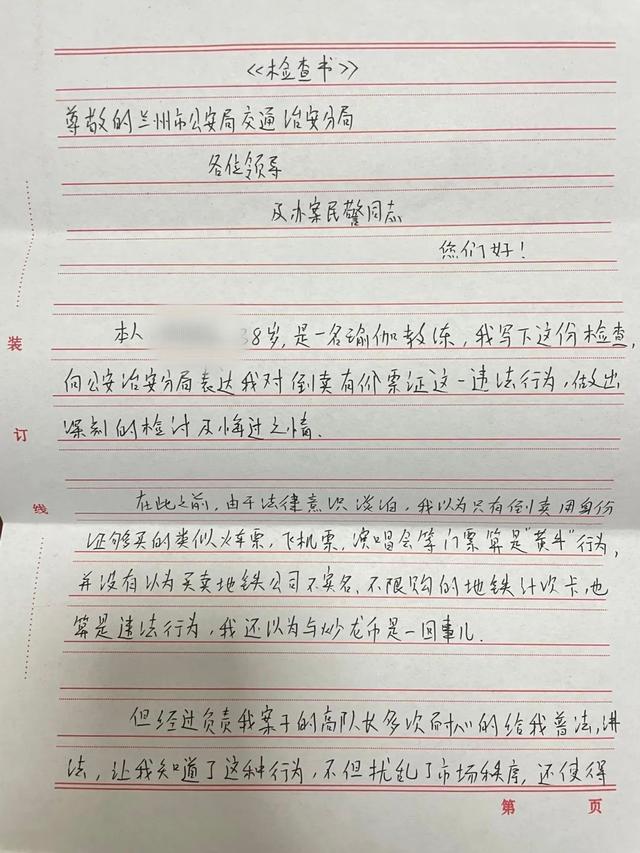 《检查书》
尊敬的兰州市公安局交通治安分局
各位领导
及办案民警同志
您们好！
本人 38岁，是一名瑜伽教练，我写下这份检查，
向公安治安分局表达我对倒卖有价票证这一违法行为，做出
深刻的检讨及悔过之情.
在此之前，由于法律意识淡泊，我以为只有倒卖用身份
证够买的类似火车票，飞机票，演唱会等门票算是“黄牛”行为，
并没有以为买卖地铁公司不实名、不限购的地铁计次卡，也
算是违法行为，我还以为与炒龙币是一回事儿.
但经过负责我案子的高队长多次耐心的给我普法，讲
法，让我知道了这种行为，不但扰乱了市场秩序，还使得
装
订
线
第 页